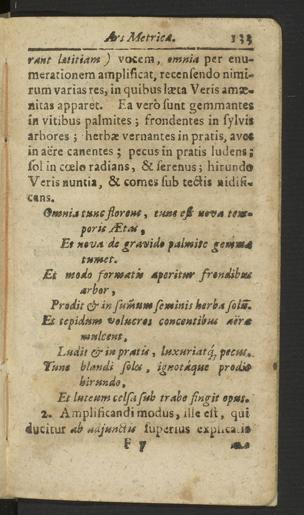 Ars Metrica. 133
rant lætitiam ) vocem, omnia per enu-
merationem amplificat, recensendo nimi-
rum varias res, in quibus læta Veris amæ-
nitas apparet. Ea verò sunt gemmantes
in vitibus palmites; frondentes in sylvis
arbores; herbæ vernantes in pratis, aves
in aëre canentes; pecus in pratis ludens;
sol in cœlo radians, & serenus; hirundo
Veris nuntia, & comes sub tectis nidifi-
cans.
Omnia tunc florent, tunc est nova tem-
poris Ætas,
Et nova de gravido palmite gemma
tumet.
Et modo formatis aperitur frondibus
arbor,
Prodit & in sum̃um seminis herba solũ.
Et tepidum volucres concentibus aëra
mulcent,
Ludit & in pratis, luxuriatq́, pecus.
Tunc blandi soles, ignotáque prodit
hirundo,
Et luteum celsa sub trabe fingit opus.
2. Amplificandi modus, ille est, qui
ducitur ab adjunctis superius explicatis
F v